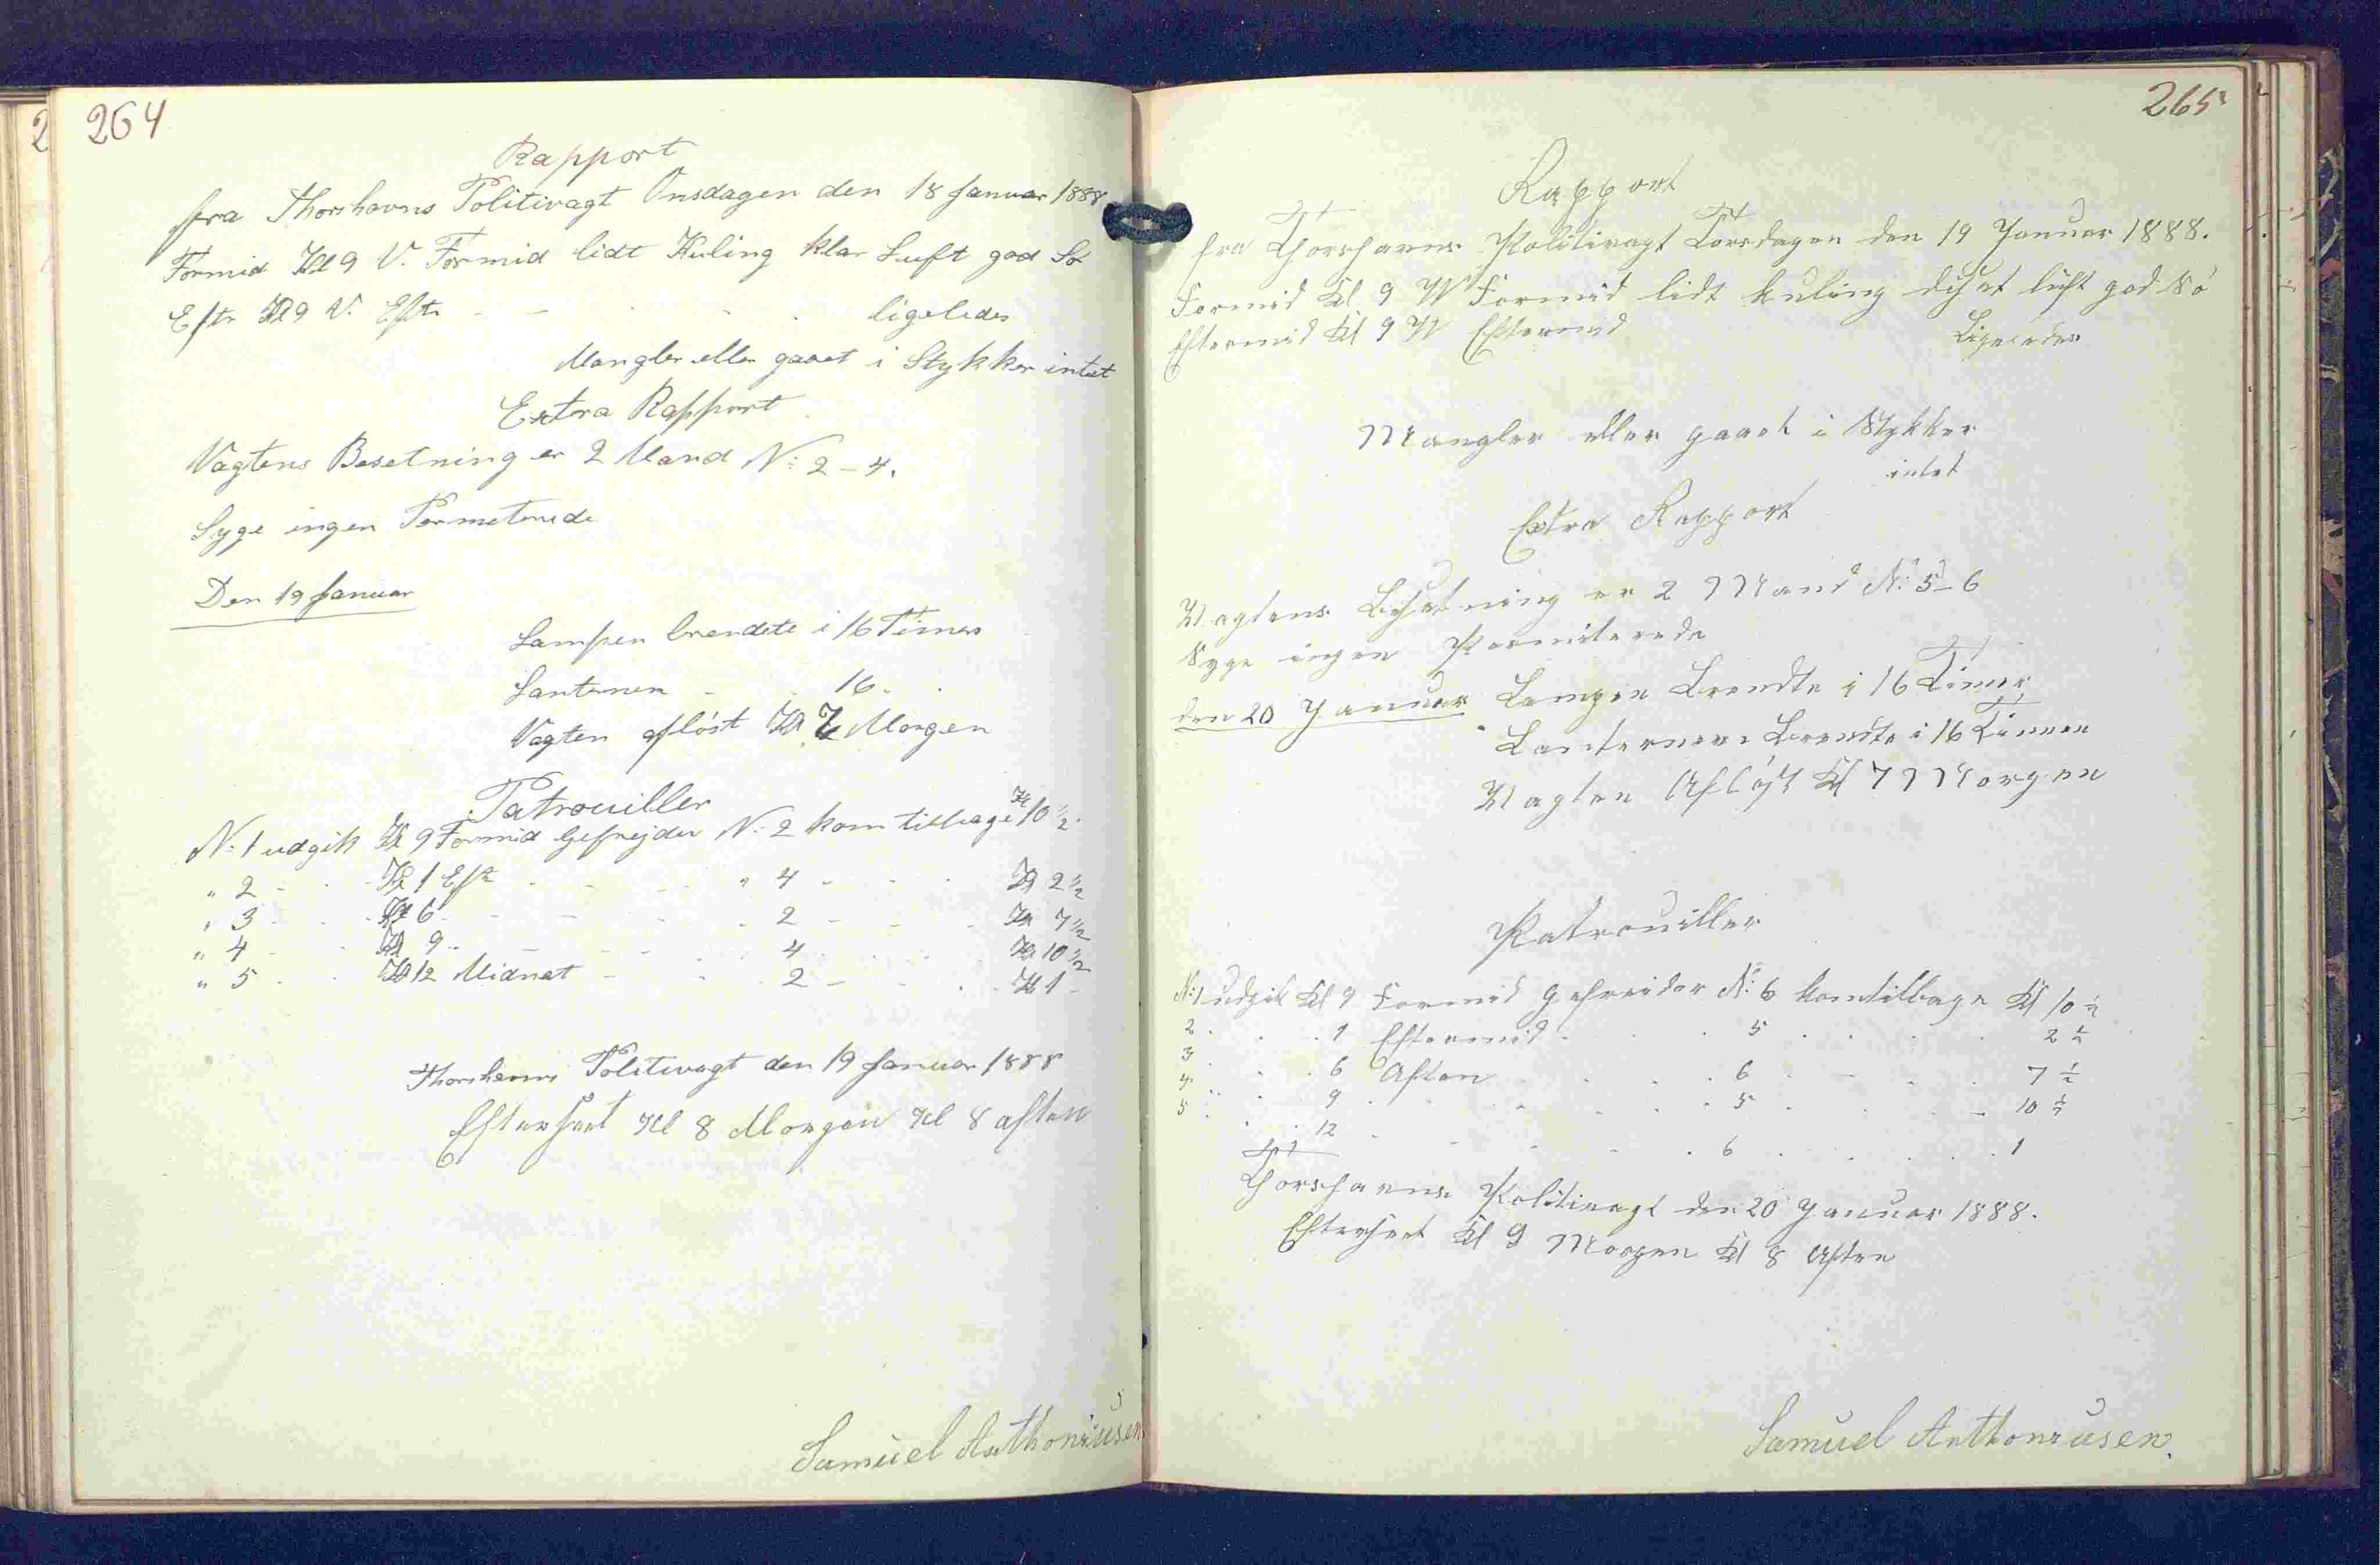 264
Rapport
fra Thorshavns Politivagt Onsdagen den 18 Januar 1888
Formid Kl 9 V. Formid lidt Kuling klar Luft god Sø
Eftr Kl 9 V. Eftr - - - - ligeledes
Mangler eller gaaet i Stykker intet
Extra Rapport
Vagtens Besetning er 2 Mand N: 2 - 4.
Syge ingen Permeterede
Den 19 Januar
Lampen brendete i 16 Timer
Lanternen - - 16 -
Vagten afløst Kl 7 Morgen
Patrouiller
N: 1 udgik Kl 9 Formid Gefrejder N: 2 kom tilbage Kl 10 1/2
" 2 - - Kl 1 Eft - - - " 4 - - - Kl 2 1/2
" 3 - - Kl 6 - - - - 2 - - - Kl 7 1/2
" 4 - - Kl 9 - - - - 4 - - - Kl 10 1/2
" 5 - - Kl 12 Midnat - - - 2 - - - Kl 1 -
Thorshavns Politivagt den 19 Januar 1888
Efterseet Kl 8 Morgen Kl 8 aften
Samuel Anthoniusen
265
Rapport
fra Thorshavns Politivagt Torsdagen den 19 Januar 1888.
Formid Kl 9 W Formid lidt kuling diset luft god Sø
Eftermid Kl 9 W Eftermid Ligeledes
Mangler eller gaaet i Stykker
intet
Extra Rapport
Vagtens Besetning er 2 Mand N: 5 - 6
Syge ingen Permiterede
den 20 Januar Lampen Brendte i 16 Timer
Lanternen Brendte i 16 Timer
Vagten Afløst Kl 7 Morgen
Patrouiller
N: 1 udgik Kl 9 Formid Gefreider N: 6 kom tilbage Kl 10 1/2
2 . . . 1 Eftermid . . . 5 . . . 2 1/2
3 . . . 6 Aften . . . 6 . . . 7 1/2
4 . . . 9 . . . 5 . . . 10 1/2
5 . . . 12 . . . 6 . . . 1
Thorshavns Politivagt den 20 Januar 1888.
Efterseet Kl 9 Morgen Kl 8 Aften
Samuel Anthoniusen.